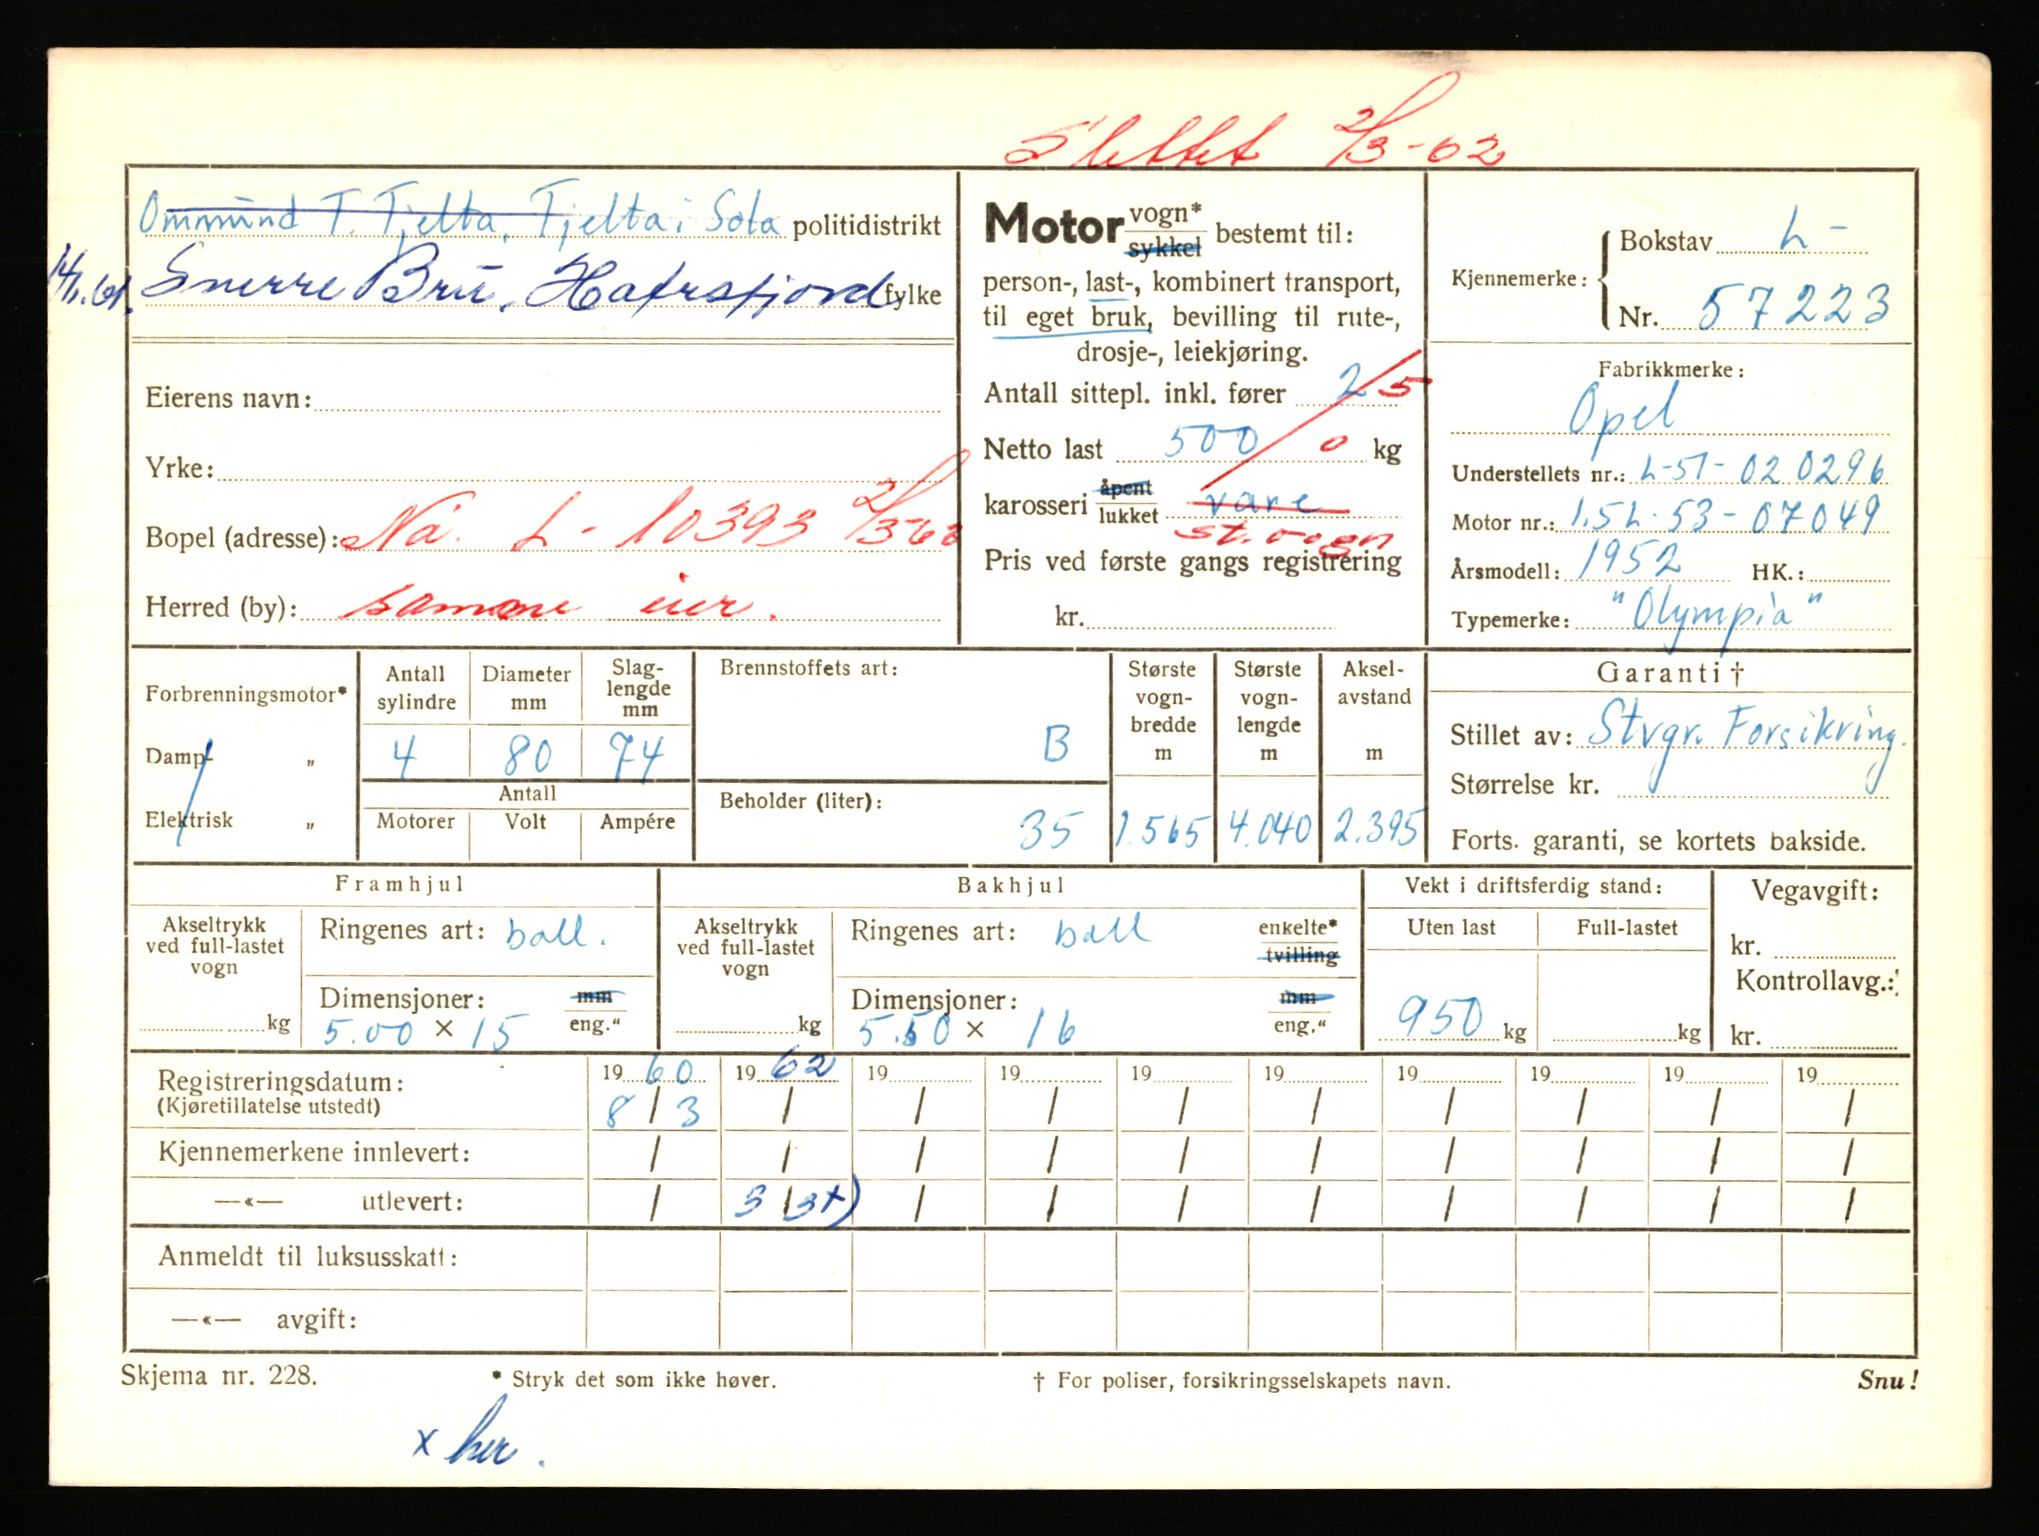 Slettet 2/3-62
Ommund T. Tjelta, Tjelta i Sola politidistrikt
14/1.61. Snerre Bru, Hafrsfjord fylke
Eierens navn:
Yrke:
Bopel (adresse): Nå. L - 10393 2/3-62
Herred (by): samme eier.
Motor vogn* sykkel bestemt til:
person-, last-, kombinert transport,
til eget bruk, bevilling til rute-,
drosje-, leiekjøring.
Antall sittepl. inkl. fører 2/5
Netto last 500 / 0 kg
karosseri åpent lukket vare
st.vogn
Pris ved første gangs registrering
kr.
Kjennemerke: Bokstav L-
Nr. 57223
Fabrikkmerke:
Opel
Understellets nr.: L-51-020296
Motor nr.: 1.5L-53-07049
Årsmodell: 1952 HK.:
Typemerke: "Olympia"
Forbrenningsmotor*
Damp- „
Elektrisk „
Antall sylindre
4
Diameter mm
80
Slag-lengde mm
74
Antall
Motorer Volt Ampére
Brennstoffets art:
B
Beholder (liter):
35
Største vogn-bredde m
1.565
Største vogn-lengde m
4.040
Aksel-avstand m
2.395
Garanti †
Stillet av: Stvgr. Forsikring.
Størrelse kr.
Forts. garanti, se kortets bakside.
Framhjul
Akseltrykk ved full-lastet vogn
kg
Ringenes art: ball.
Dimensjoner: mm
5.00 × 15 eng."
Bakhjul
Akseltrykk ved full-lastet vogn
kg
Ringenes art: ball enkelte* tvilling
Dimensjoner: mm
5.50 × 16 eng."
Vekt i driftsferdig stand:
Uten last Full-lastet
950 kg kg
Vegavgift:
kr.
Kontrollavg.:
kr.
Registreringsdatum: 19 60 19 62 19 19 19 19 19 19 19 19
(Kjøretillatelse utstedt) 8 / 3 / / / / / / / / /
Kjennemerkene innlevert: / / / / / / / / / /
—«— utlevert: / 3 / 3 x) / / / / / / / /
Anmeldt til luksusskatt:
—«— avgift:
Skjema nr. 228. * Stryk det som ikke høver. † For poliser, forsikringsselskapets navn. Snu!
x her.